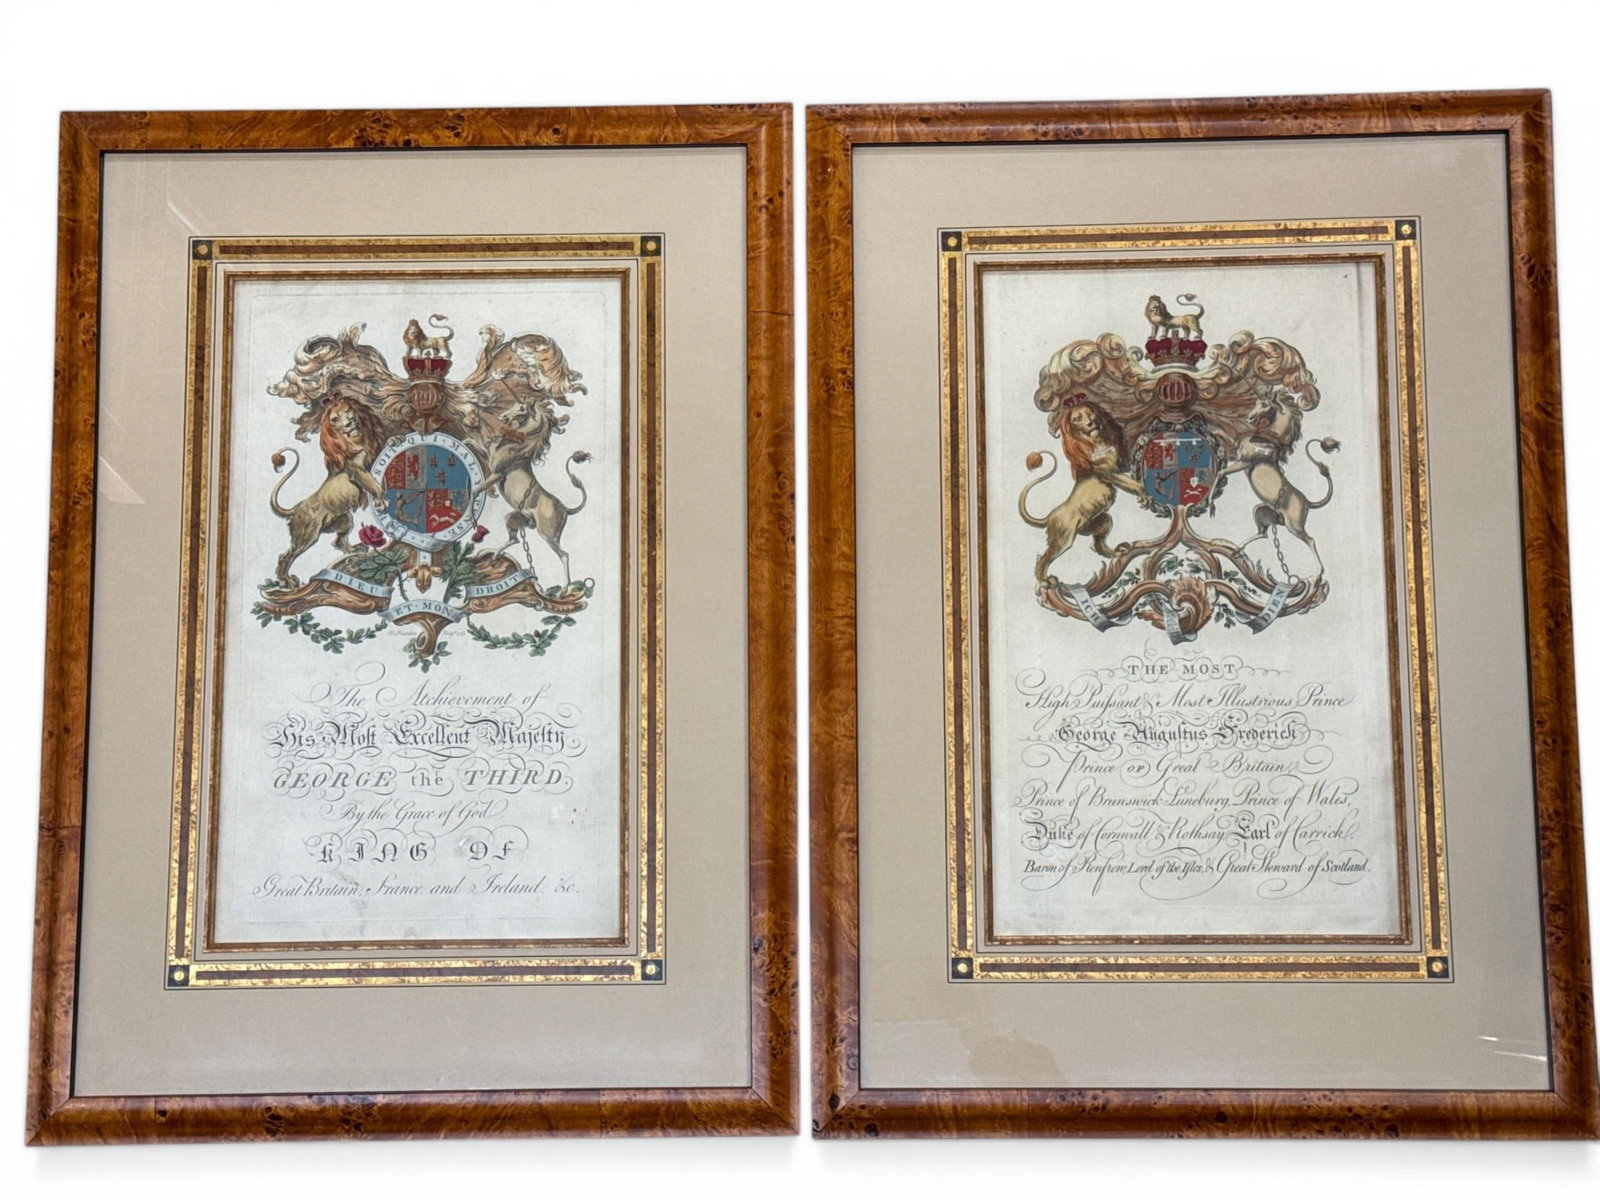 HONI SOIT QUI MAL Y PENSE
DIEU ET MON DROIT
The Atchievement of
His Most Excellent Majesty
GEORGE the THIRD,
By the Grace of God
KING OF
Great Britain, France, and Ireland, &c.
ICH DIEN
THE MOST
High Puissant & Most Illustrious Prince
George Augustus Frederick
Prince OF Great Britain,
Prince of Brunswick Luneburg, Prince of Wales,
Duke of Cornwall & Rothsay, Earl of Carrick,
Baron of Renfrew, Lord of the Isles, & Great Steward of Scotland.